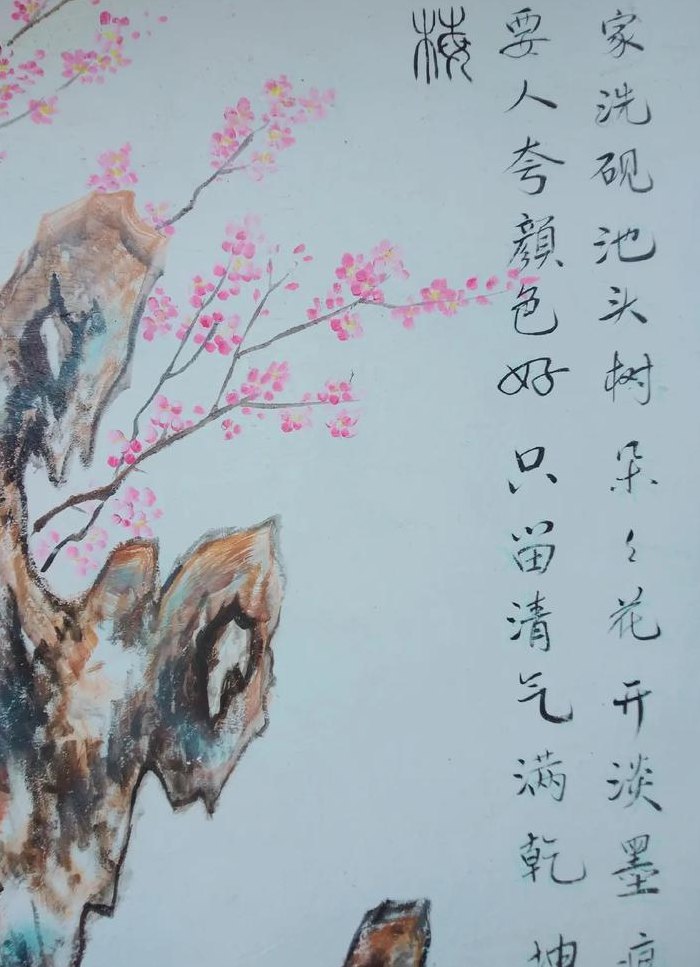 家洗砚池头树朵々花开淡墨痕
要人夸顔色好只留清气满乾坤
梅